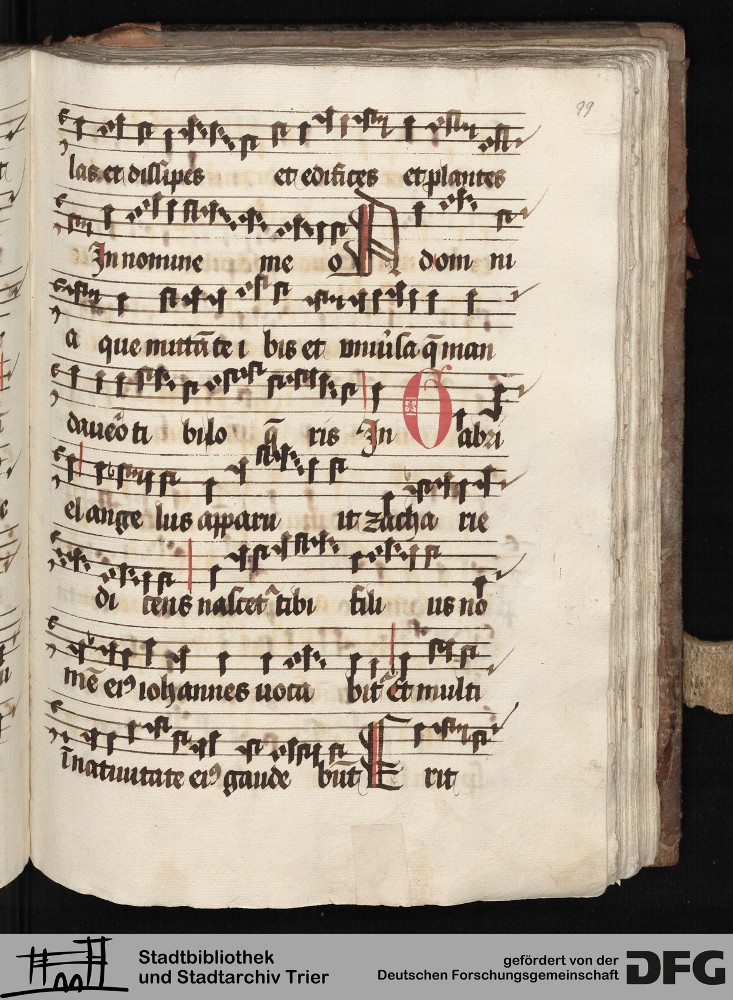 99
las et dissipes et edifices et plantes
In nomine me o A dom ni
a que mittā te i bis et uniūsa q̄ man
davero ti bi lo q̄ ris In Gabri
el ange lus apparu it zacha rie
di cens nascet tibi fili us nō
mē eiꝰ iohannes voca bit Et multi
ī nativitate eiꝰ gaude būt E rit
Stadtbibliothek
und Stadtarchiv Trier
gefördert von der
Deutschen Forschungsgemeinschaft
DFG